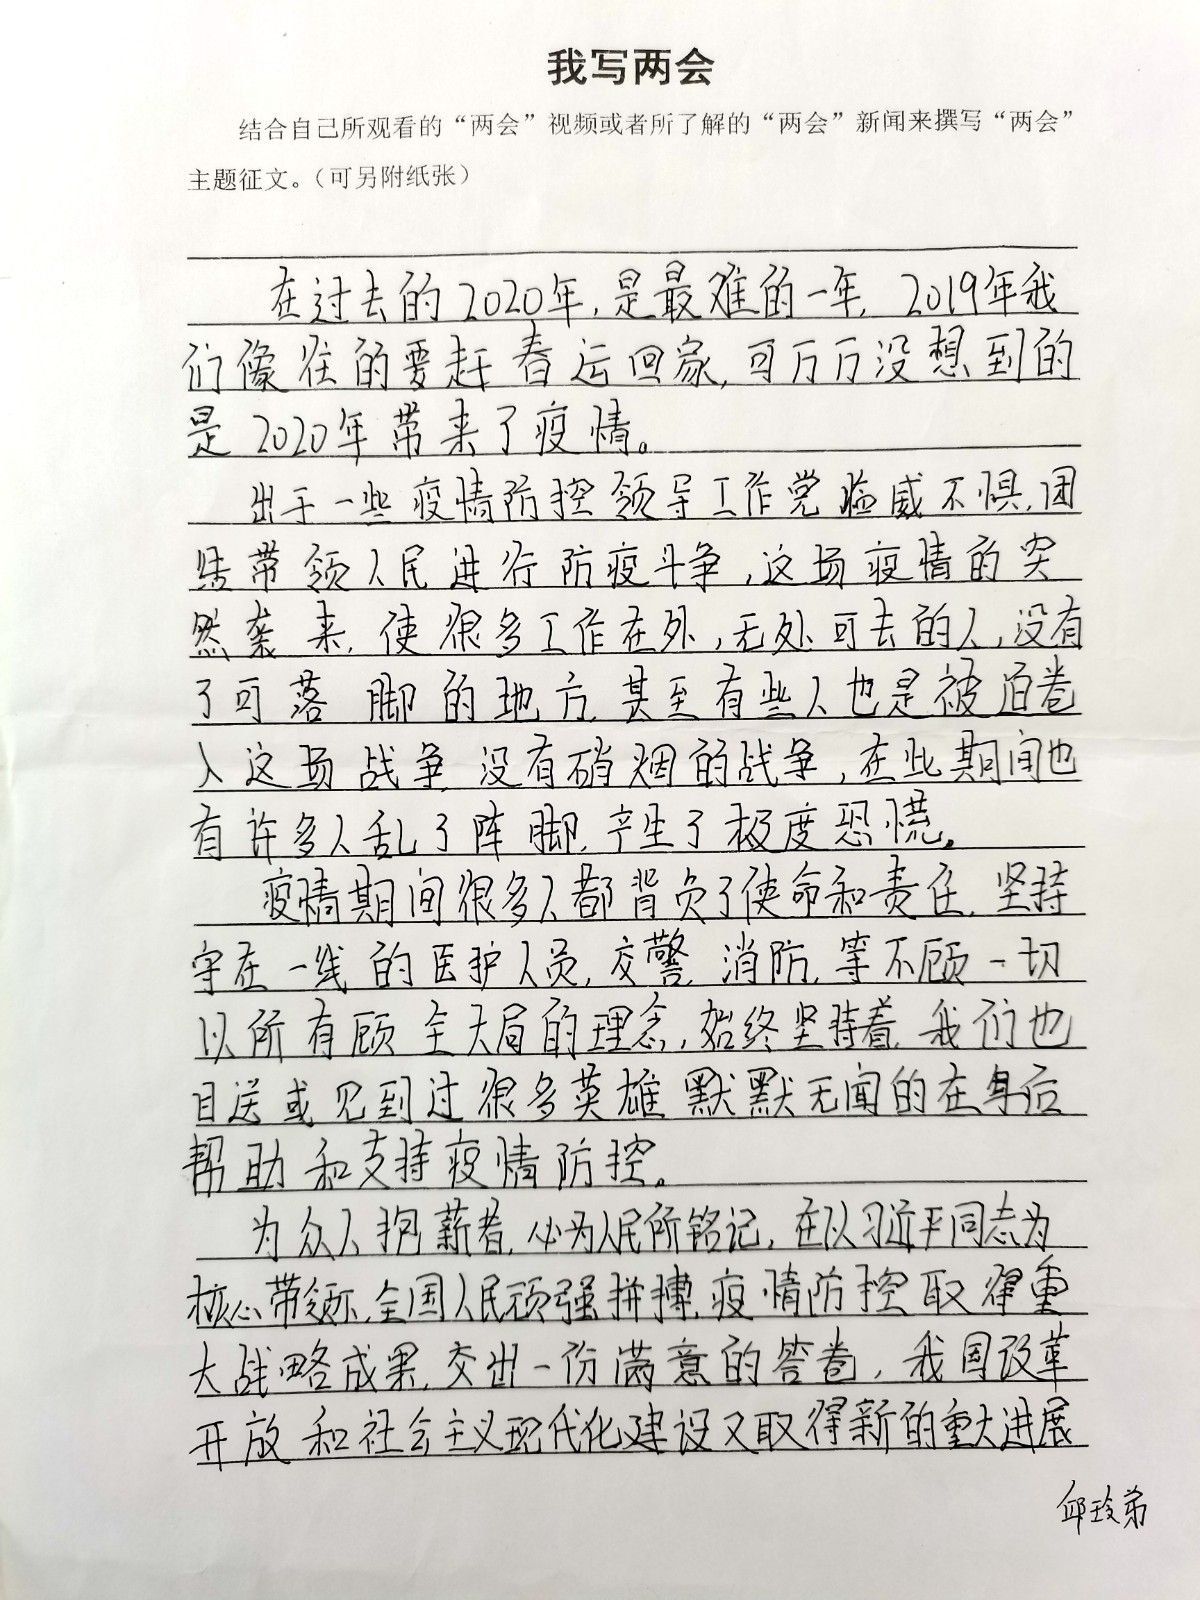 我写两会
结合自己所观看的“两会”视频或者所了解的“两会”新闻来撰写“两会”
主题征文。（可另附纸张）
在过去的2020年,是最难的一年, 2019年我
们像往的要赶春运回家,可万万没想到的
是2020年带来了疫情。
出于一些疫情防控领导工作党临威不惧,团
结带领人民进行防疫斗争,这场疫情的突
然袭来,使很多工作在外,无处可去的人,没有
了可落脚的地方,甚至有些人也是被迫卷
入这场战争,没有硝烟的战争,在此期间也
有许多人乱了阵脚,产生了极度恐慌。
疫情期间很多人都背负了使命和责任,坚持
守在一线的医护人员,交警,消防,等不顾一切
以所有顾全大局的理念,始终坚持着,我们也
目送或见到过很多英雄默默无闻的在身后
帮助和支持疫情防控。
为众人抱薪者,必为人民所铭记,在以习近平同志为
核心带领,全国人民顽强拼搏,疫情防控取得重
大战略成果,交出一份满意的答卷,我国改革
开放和社会主义现代化建设又取得新的重大进展
邱玲弟